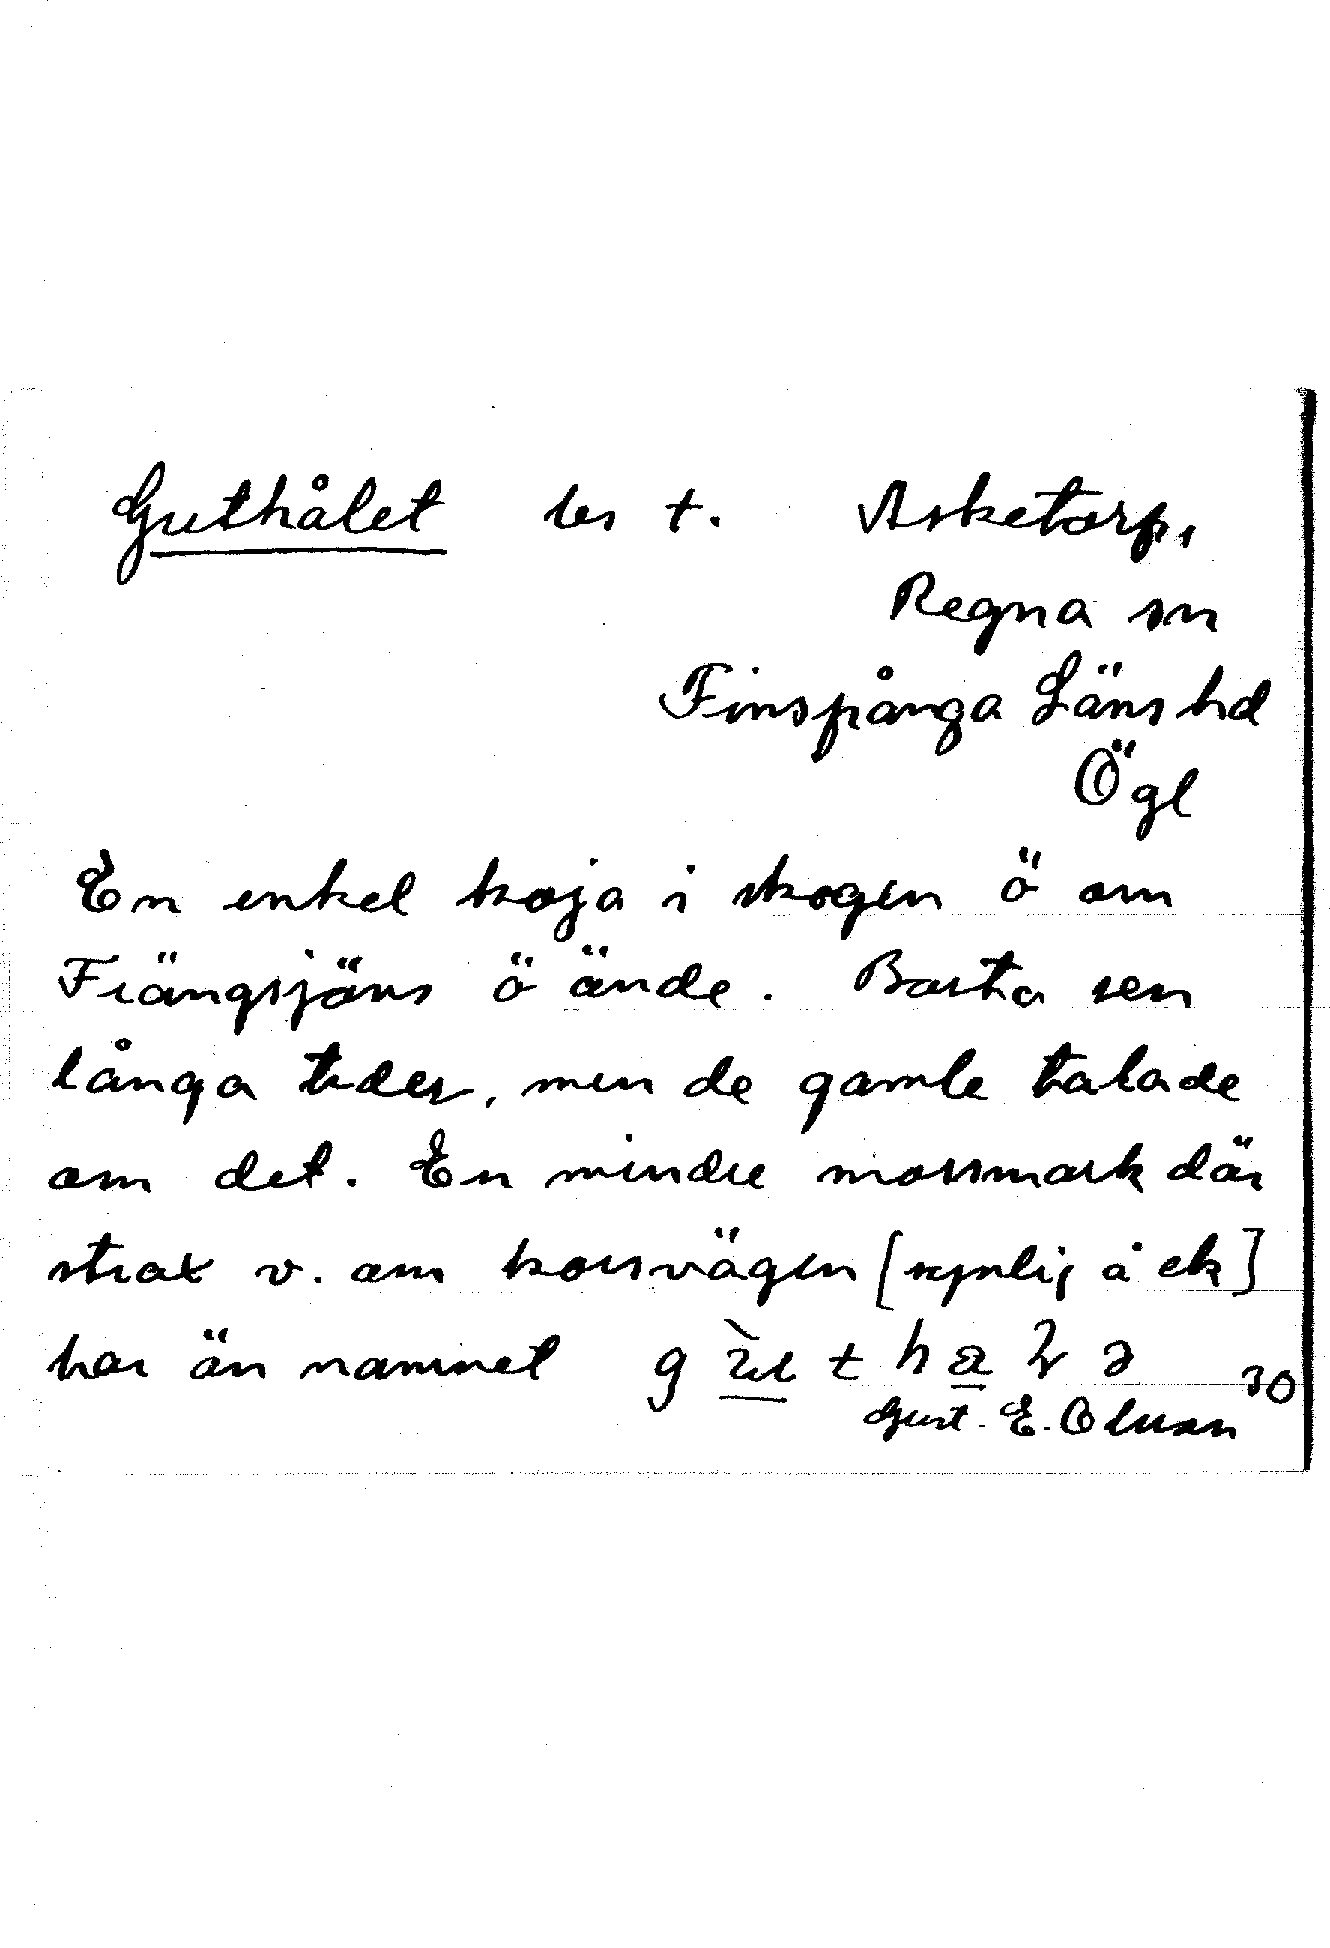 Guthålet les t. Asketorp,
Regna sn
Finspånga Läns hd
Ögl
En enkel koja i skogen ö om
Frängsjöns ö ände. Borta sen
långa tider, men de gamle talade
om det. En mindre mossmark där
strax v. om korsvägen [synlig å ek]
har än namnet
30
Gust. E. Olsson